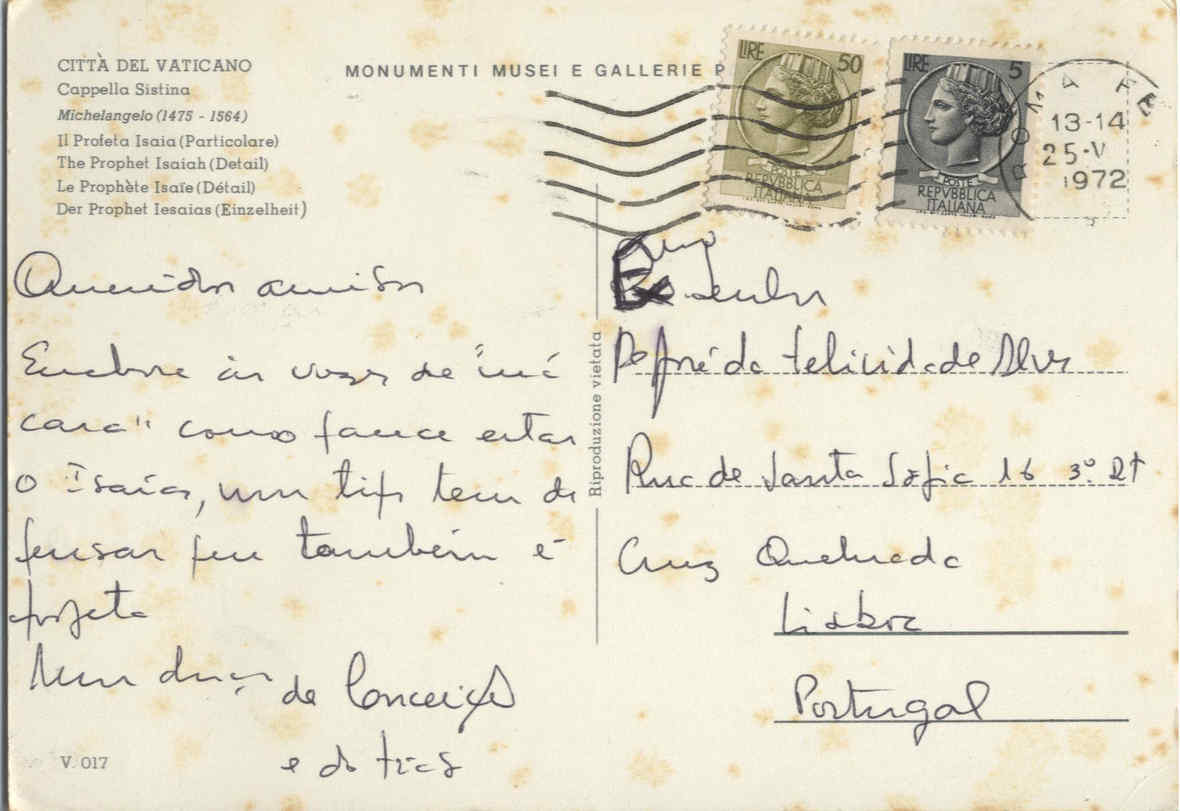 CITTÀ DEL VATICANO
Cappella Sistina
Michelangelo (1475 - 1564)
Il Profeta Isaia (Particolare)
The Prophet Isaiah (Detail)
Le Prophète Isaïe (Détail)
Der Prophet Iesaias (Einzelheit)
MONUMENTI MUSEI E GALLERIE P
LIRE 50
POSTE
REPVBBLICA
ITALIANA
LIRE 5
POSTE
REPVBBLICA
ITALIANA
ROMA FE
13-14
25-V
1972
Queridos amigos
Embora às vezes de "má
cara" como parece estar
o Isaías, um tipo tem de
pensar que também é
profeta
Um abraço da Conceição
e do
V. 017
Riproduzione vietata
Exmo. Senhor
Pe José da Felicidade Alves
Rua de Santa Sofia 16 3º. Dt
Cruz Quebrada
Lisboa
Portugal